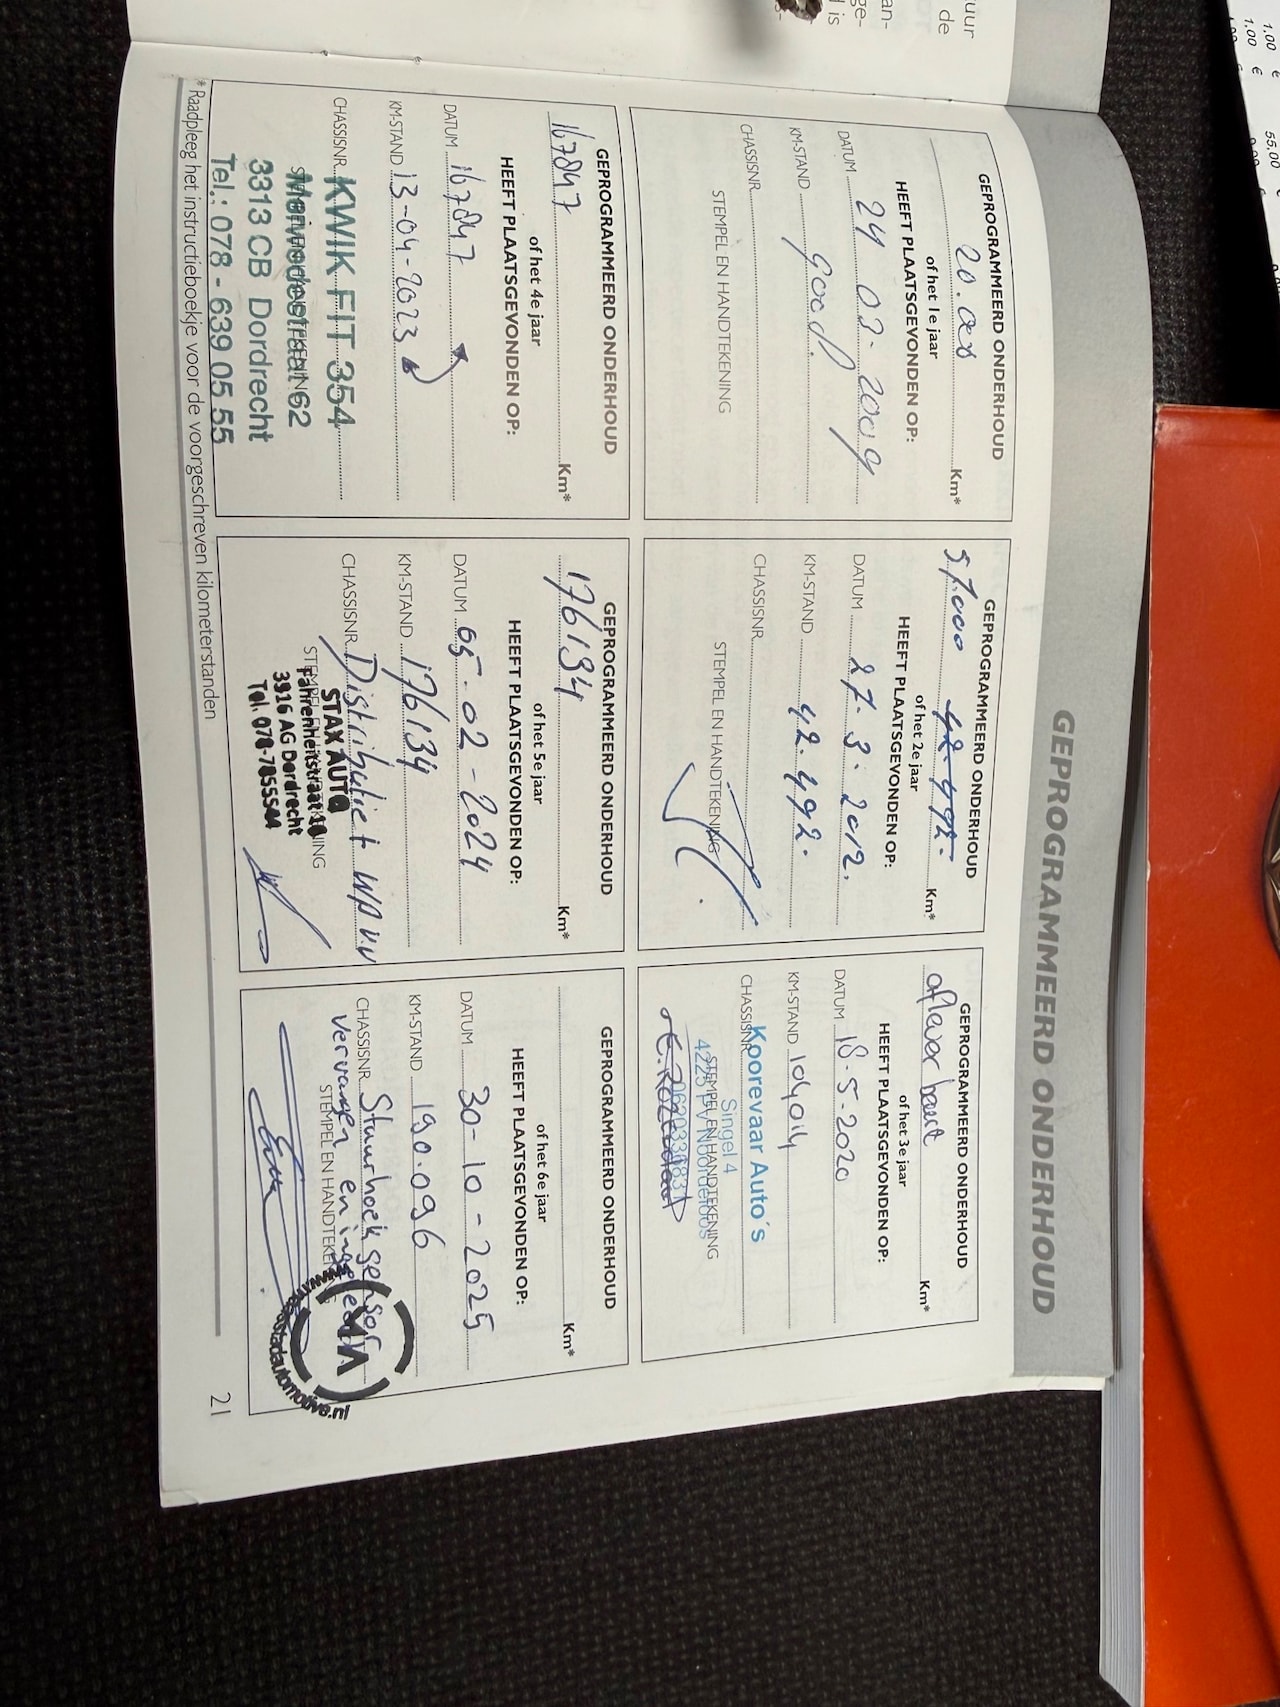 GEPROGRAMMEERD ONDERHOUD
GEPROGRAMMEERD ONDERHOUD
20.000 Km*
of het 1e jaar
HEEFT PLAATSGEVONDEN OP:
DATUM 24 03. 2009
KM-STAND good.
CHASSISNR.
STEMPEL EN HANDTEKENING
GEPROGRAMMEERD ONDERHOUD
57.000 42.492. Km*
of het 2e jaar
HEEFT PLAATSGEVONDEN OP:
DATUM 27. 3. 2012.
KM-STAND 42.492.
CHASSISNR.
STEMPEL EN HANDTEKENING
GEPROGRAMMEERD ONDERHOUD
aflever beurt Km*
of het 3e jaar
HEEFT PLAATSGEVONDEN OP:
DATUM 18.5.2020
KM-STAND 104014
CHASSISNR.
Koorevaar Auto's
Singel 4
STEMPEL EN HANDTEKENING
GEPROGRAMMEERD ONDERHOUD
167847 Km*
of het 4e jaar
HEEFT PLAATSGEVONDEN OP:
DATUM 167847
KM-STAND 13-04-2023
CHASSISNR.
KWIK FIT 354
Merwedestraat 62
3313 CB Dordrecht
Tel.: 078 - 639 05 55
GEPROGRAMMEERD ONDERHOUD
176134 Km*
of het 5e jaar
HEEFT PLAATSGEVONDEN OP:
DATUM 05-02-2024
KM-STAND 176134
CHASSISNR. Distributie +
STAX AUTO
Fahrenheitstraat
3316 AG Dordrecht
GEPROGRAMMEERD ONDERHOUD
Km*
of het 6e jaar
HEEFT PLAATSGEVONDEN OP:
DATUM 30-10-2025
KM-STAND 190.096
CHASSISNR. Stuurhoek sensor
vervangen en
STEMPEL EN HANDTEKE
* Raadpleeg het instructieboekje voor de voorgeschreven kilometerstanden
21
uur
de
an-
ge-
is
1.00 €
1.00 €
55.00